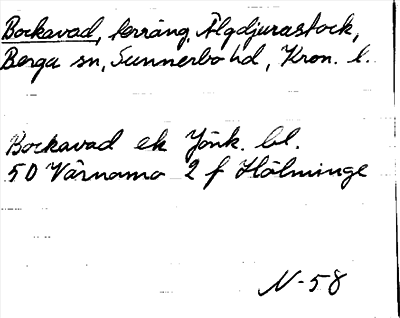 Bockavad, terräng, Älgdjurastock,
Berga sn, Sunnerbo hd, Kron. l.
Bockavad ek Jönk. bl.
50 Värnamo 2 f Hölminge
N-58